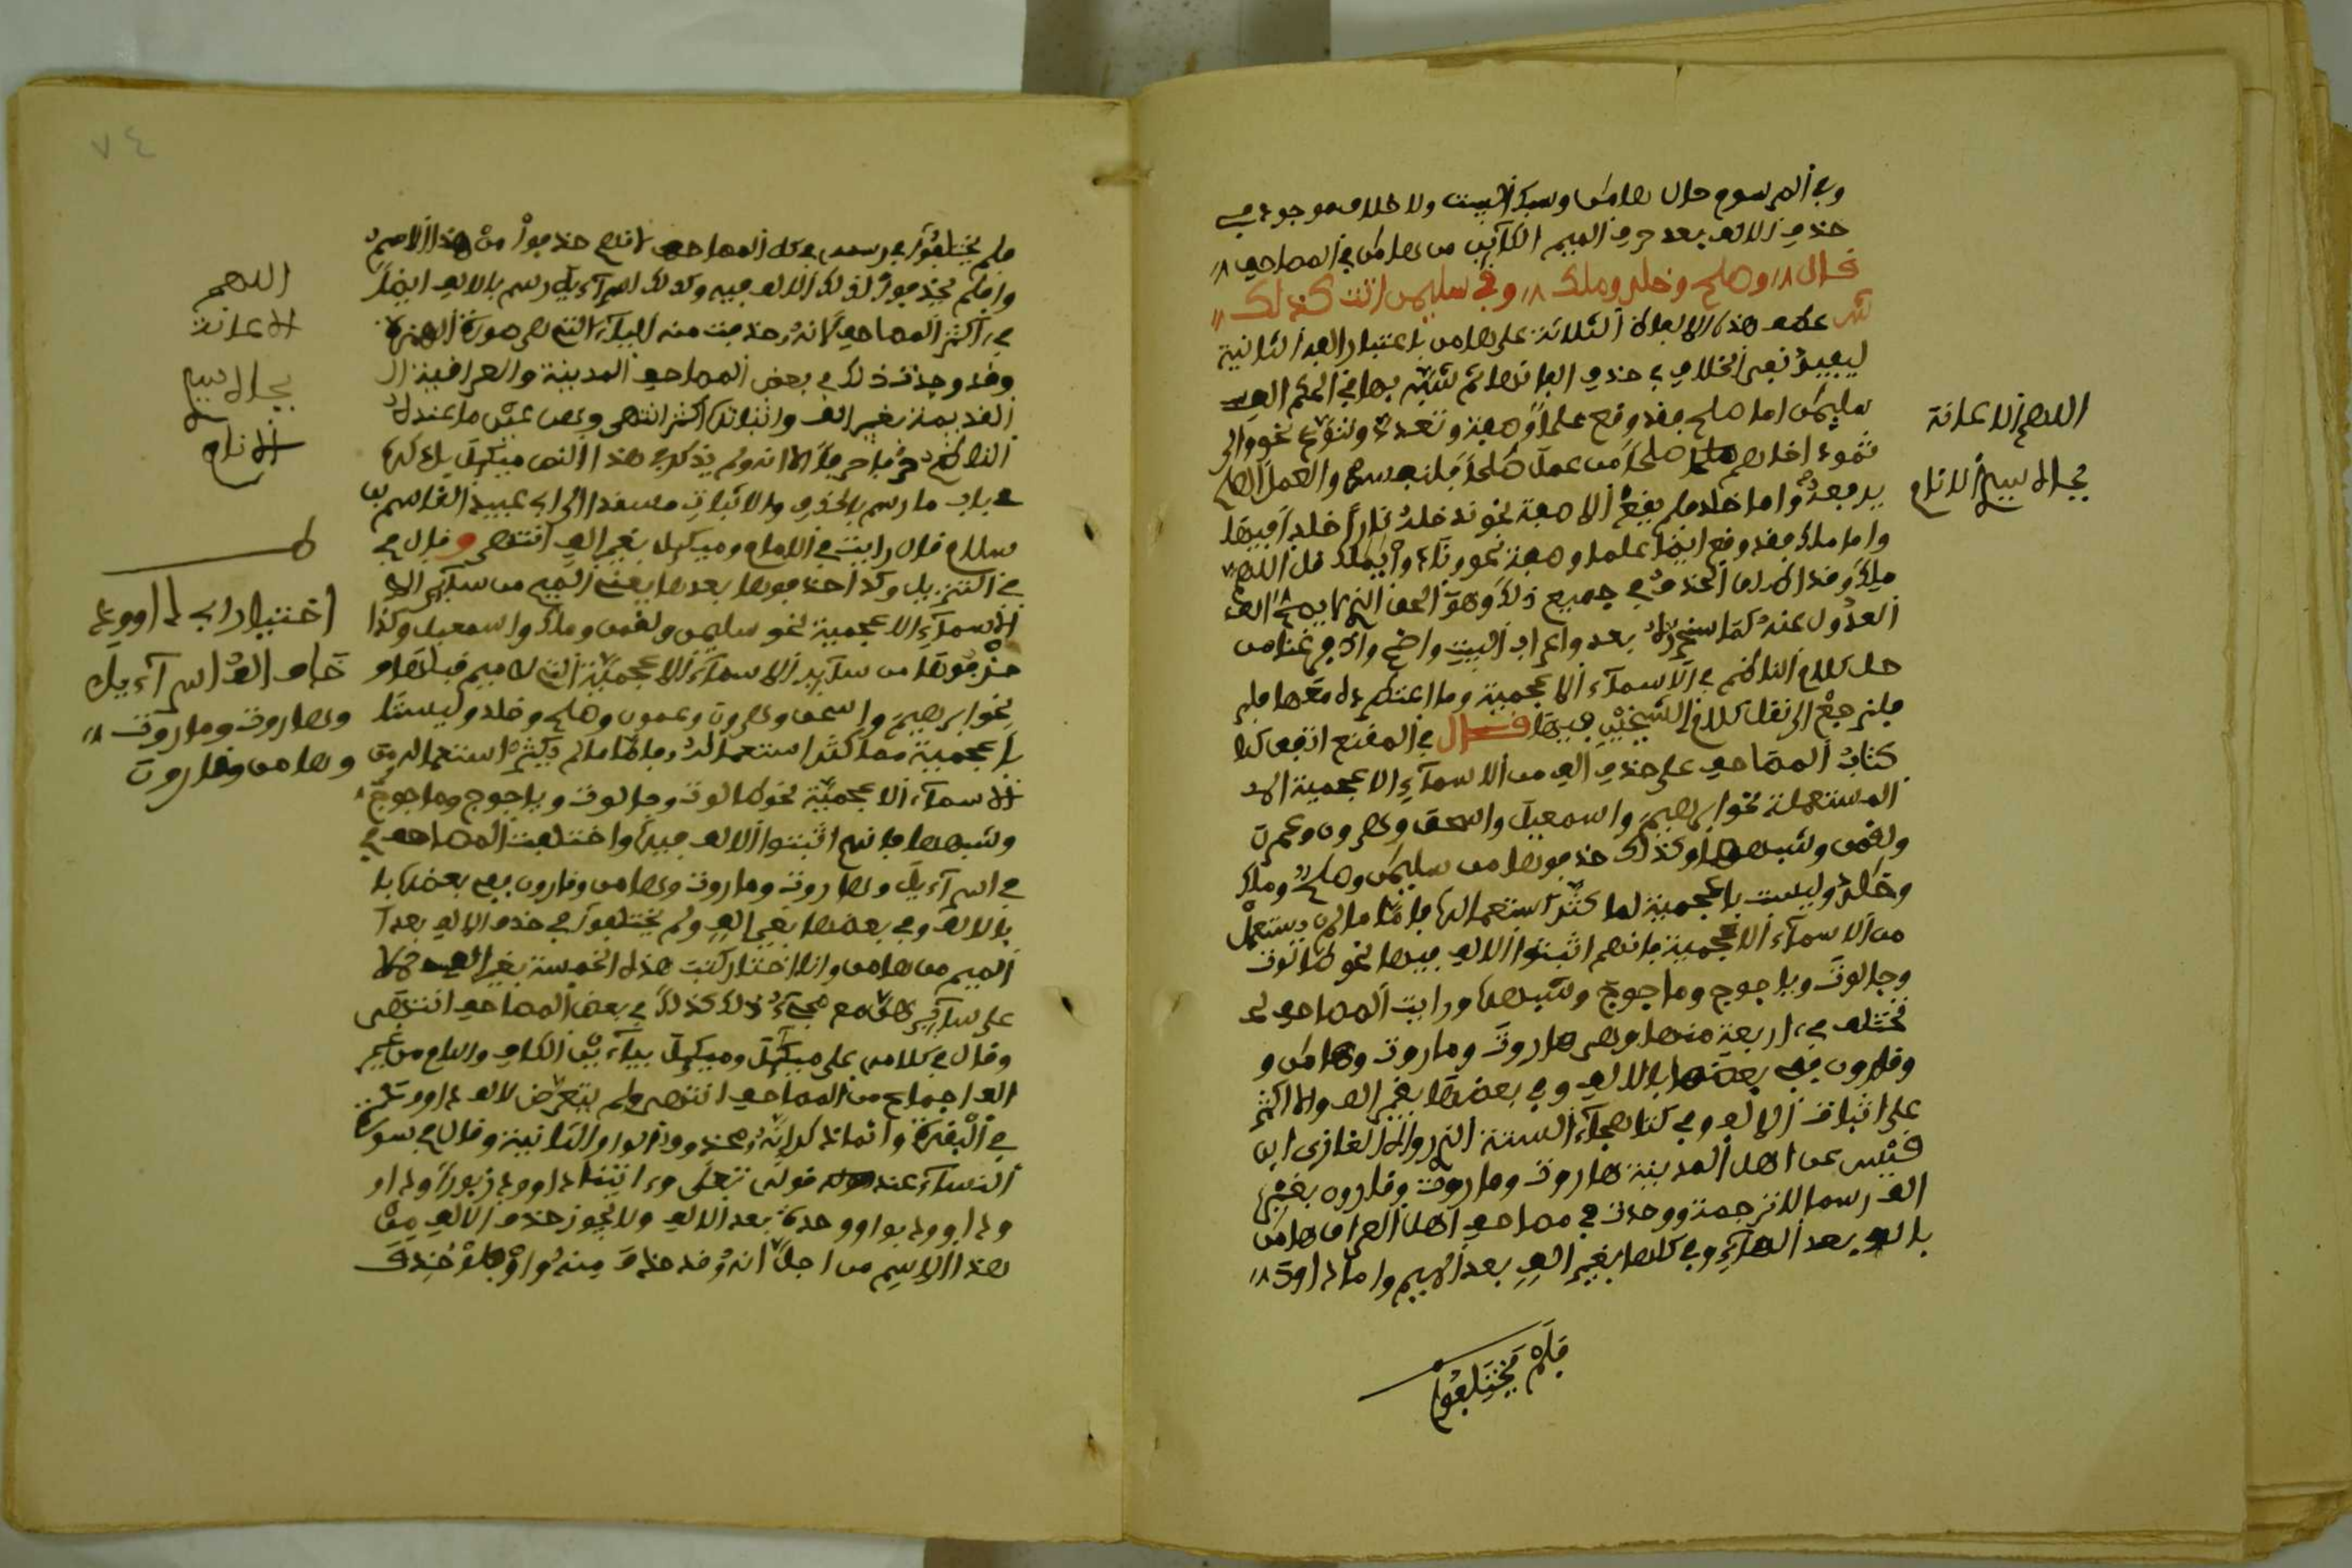 وفي المرسوم حال هامن وسبك البيت ولا خلاف موجود في
حذف الالف بعد حرف الميم الكائن من هامن في المصاحف
قال وصلح وخلد وملك وفي سليمن اتت كذلك
عطف هذه الالفاظ الثلاثة على هامن باعتبار الفه الثانية
ليفيد نفي الخلاف في حذف الفاتها ثم شبه بها في الحكم الف
سليمن اما صلح فقد وقع علما وصفة وتعدد وتنوع نحو والى
ثمود اخاهم صلحا من عمل صلحا فلنفسه والعمل الصلح
يرفعه واما خلد فلم يقع الا صفة نحو يدخله نارا خلدا فيها
واما ملك فقد وقع ايضا علما وصفة نحو ونادوا يملك قل اللهم
ملك وقد اطلق الحذف في جميع ذلك وهو الحق الذي لا يصح
العدول عنه كما سنحرره بعد واعراب البيت واضح واذ فرغنا من
حل كلام الناظم في الاسماء الاعجمية وما انتظم في معها فلم
فلنرجع الى نقل كلام الشيخين فيها قال في المقنع اتفق كذا
كتاب المصاحف على حذف الالف من الاسماء الاعجمية
المستعملة نحو ابرهيم واسمعيل واسحق وهرون وعمرن
ولقمن وشبهها وكذلك حذفوها من سليمن وصلح وملك
وخلد وليست باعجمية لما كثر استعمالها فاما ما لم يستعمل
من الاسماء الاعجمية فانهم اثبتوا الالف فيها نحو طالوت
وجالوت وياجوج وماجوج وشبهها ورايت المصاحف
تختلف في اربعة منها وهي هاروت وماروت وهامن و
وقارون ففي بعضها بالالف وفي بعضها بغير الف والاكثر
على اثبات الالف وفي كتاب هجاء السنة الذي رواه الغازي ابن
قيس عن اهل المدينة هاروت وماروت وقارون بغير
الف رسما لا ترجمة ووجدت في مصاحف اهل العراق هامن
بالف بعد الهاء وفي كلها بغير الف بعد الميم واما داود
فلم يختلفوا
اللهم الاعانة
بجاه سيد الانام
٧٤
فلم يختلفوا في رسمه في كل المصاحف لانهم حذفوا من هذا الاسم
واو فلم يحذفوا لذلك الالف فيه وكذلك اسراءيل رسم بالالف ايضا
في اكثر المصاحف لانه حذفت منه الياء التي هي صورة الهمزة
وقد وجدت ذلك في بعض المصاحف المدينة والعراقية
القديمة بغير الف واثباتها اكثر انتهى
الناظم
في باب ما رسم بالحذف والاثبات مسندا الى ابي عبيد القاسم بن
سلام قال رايت في الامام وميكيل بغير الف انتهى وقال في
في التنزيل وكذا حذفوها بعدها يعني الميم من سائر
الاسماء الاعجمية نحو سليمن ولقمن وملك واسمعيل وكذا
حذفوها من سائر الاسماء الاعجمية التي لا ميم قبلها
نحو ابرهيم واسحق وهرون وعمرن وصلح وخلد وليستا
باعجمية مما كثر استعماله فاما ما لم يكثر استعماله من
الاسماء الاعجمية نحو طالوت وجالوت وياجوج وماجوج
وشبهها فانهم اثبتوا الالف فيها واختلفت المصاحف في
في اسراءيل وهاروت وماروت وهامن وقارون ففي بعضها با
بالالف وفي بعضها بغير الف ولم يختلفوا في حذف الالف بعد
الميم من هامن وانا اختار كتب هذه الخمسة بغير الف حملا
على سائرها مع مجيء ذلك كذلك في بعض المصاحف انتهى
وقال في كلامه على ميكيل وميكيل بياء بين الكاف واللام من غير
الف اجماع من المصاحف انتهى ولم يتعرض لالف داود
في البقرة وانما ذكر انه محذوف الواو الثانية وقال في سورة
النساء عند قوله تعلى وءاتينا داود زبورا
وداود بواو واحدة بعد الالف ولا يجوز حذف الالف من
هذا الاسم من اجل انه قد حذف منه واو فلو حذف
اللهم
الاعانة
بجاه سيد
الانام
ط
اختيار ابي داوود
حذف الف اسراءيل
وهاروت وماروت
وهامن وقارون